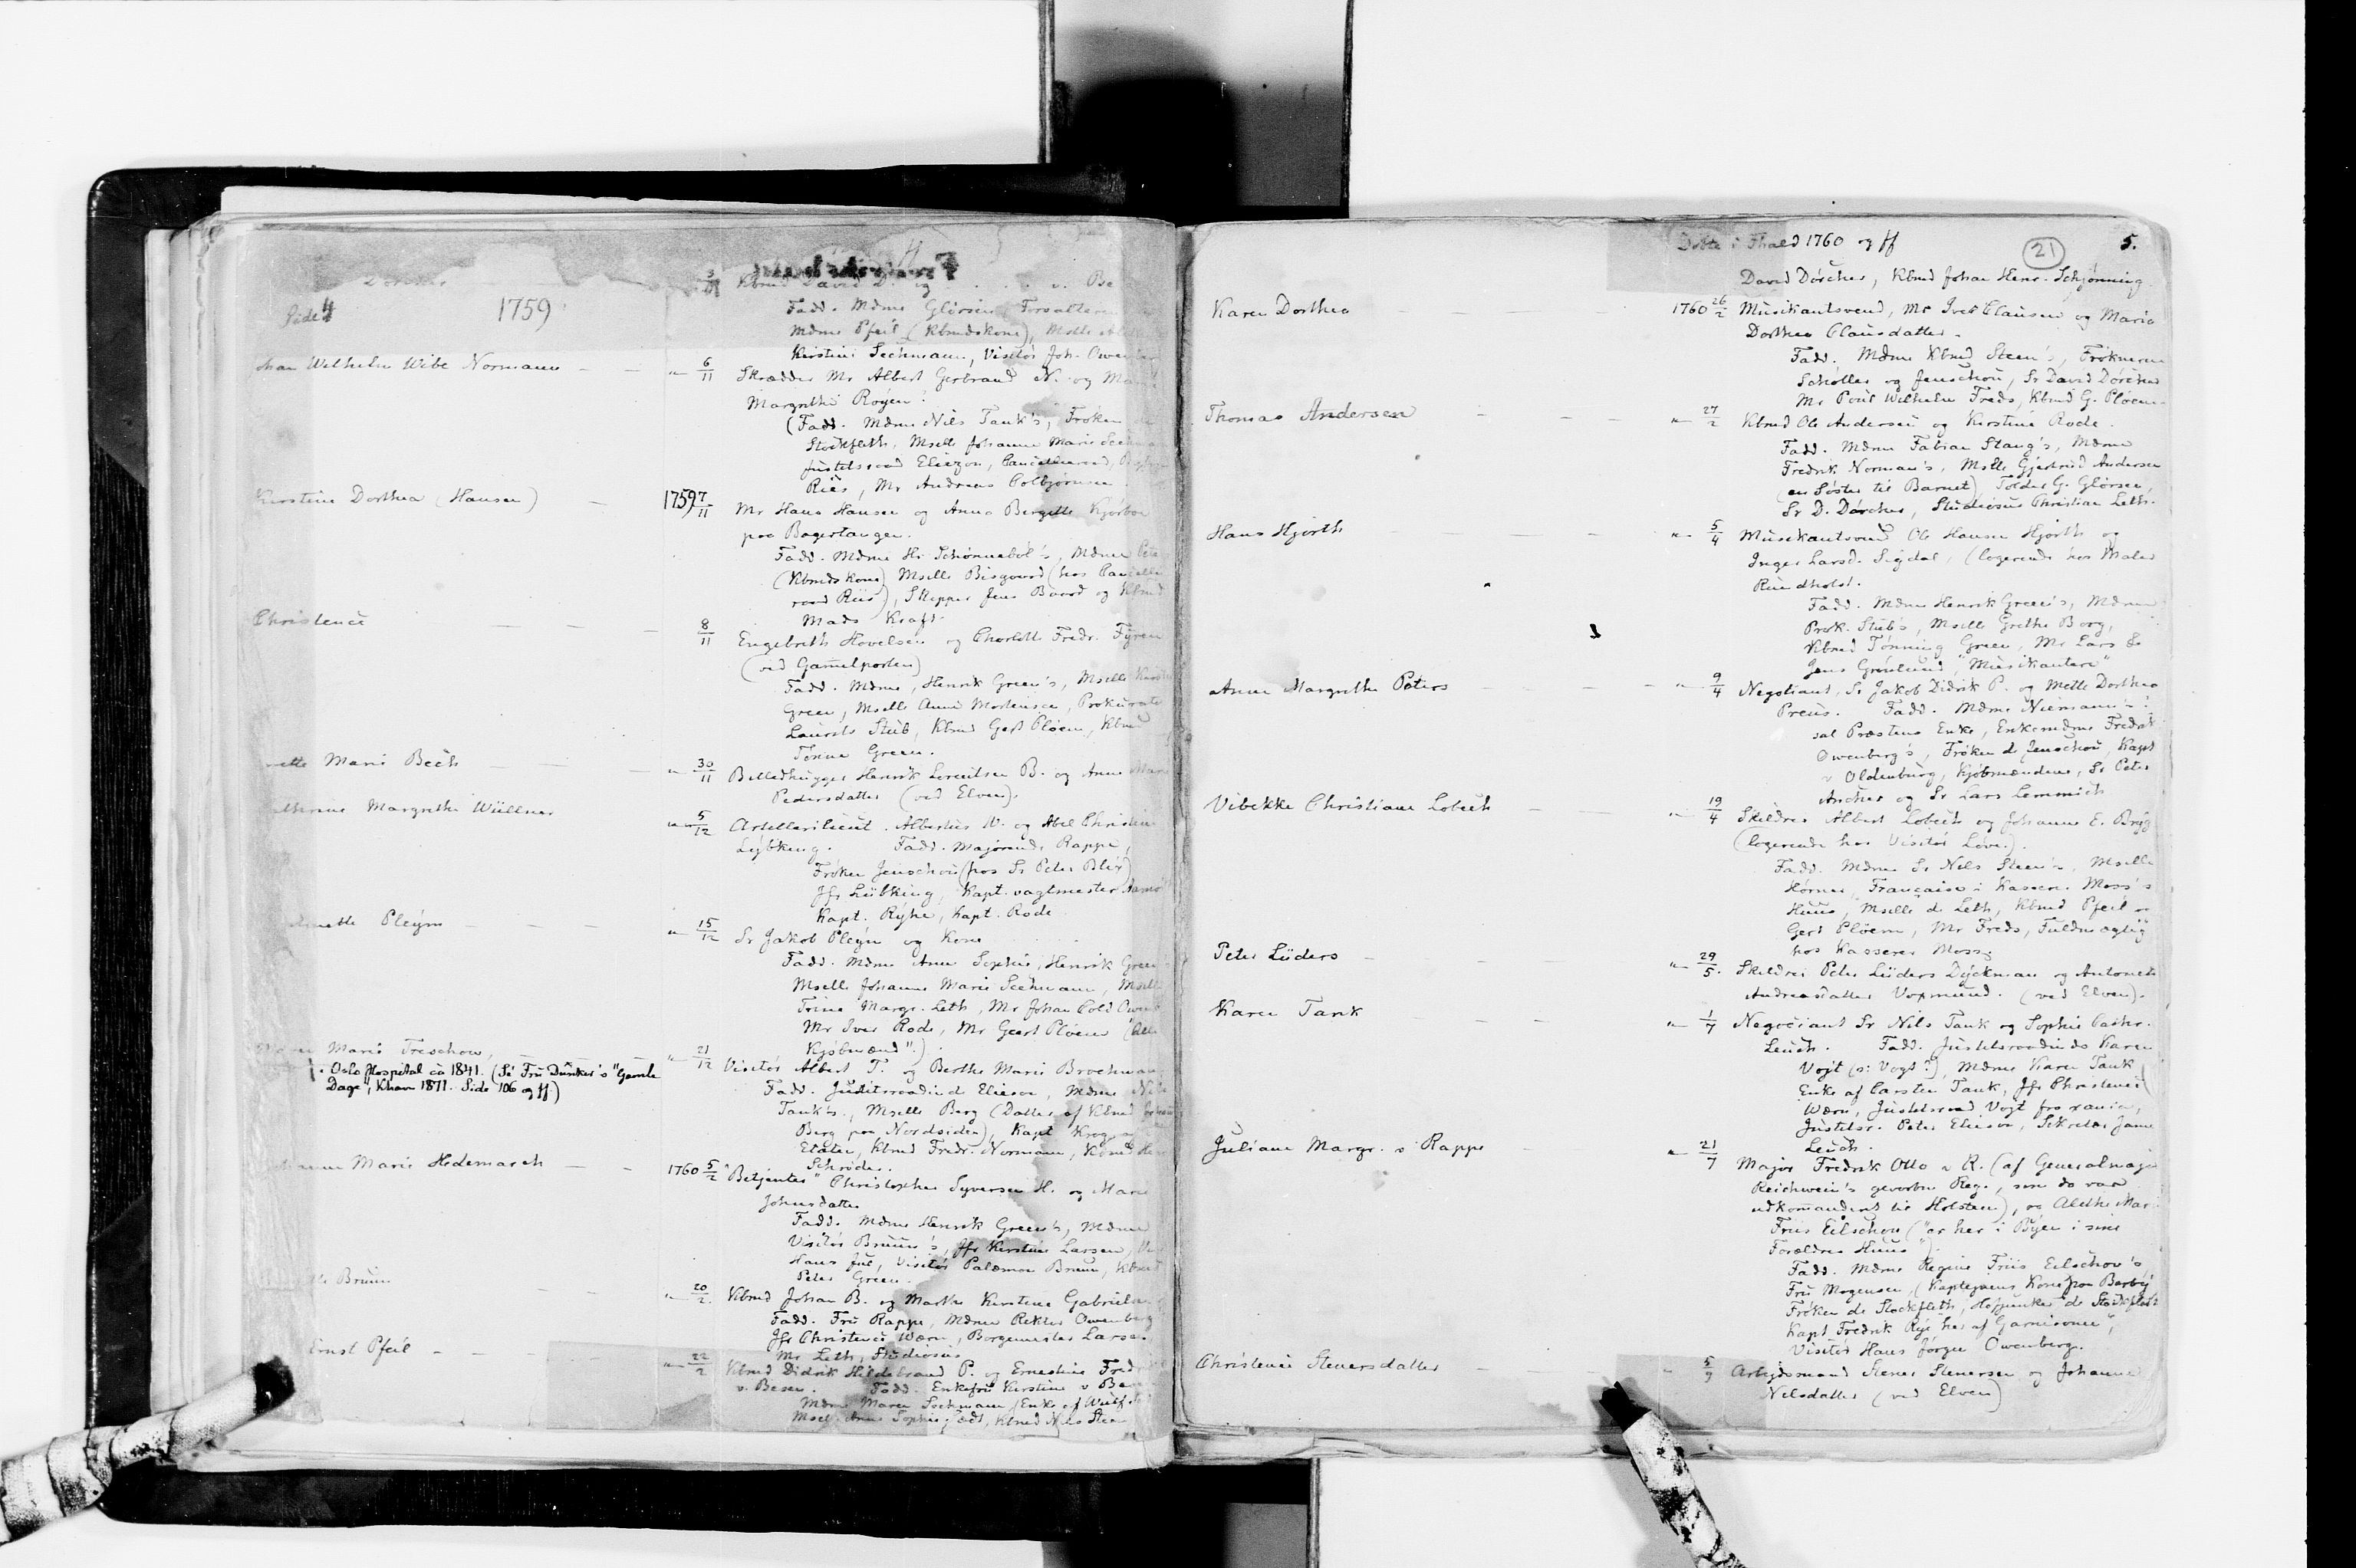 Side 4
1759
Kbmd David D. og . . . . v. Be
Fadd. Mdme Glörsen, Forvalteren
Mdme Pfeil (Kbmdskone), Mslle
Kirstine Seehmann, Visitör Joh. Owenberg
Johan Wilhelm Wibe Normann — — " 6/11 Skrædder Mr Albert Gerbrand N. og Marie
Margrethe Royen.
(Fadd. Mdme Nils Tank's, Fröken de
Stockfleth, Mselle Johanne Marie Seehmann
Justitsraad Eliezon, Cancelliraad,
Riis, Mr Andreas Colbjörnsen
Kirstine Dorthea (Hansen) — 1759 7/11 Mr Hans Hansen og Anna Bergette Kjörboe
paa Bagertangen.
Fadd. Mdme Hr Schönneböl's, Mdme
(Kbmdskone) Mselle Bisgaard (hos Cancelli
raad Riis), Skipper Jens Baard og Kbmd
Mads Kraft.
Christence — — — 8/11 Engebreth Hovelsen og Charlotte Fredr. Fyren
(ved Gamelporten)
Fadd. Mdme, Henrik Green's, Mselle
Green, Mselle Anne Mortensen, Prokurator
Laurits Stub, Kbmd Gert Ploen, Kbmd
Tönne Green.
Marie Bech — — — " 30/11 Billedhugger Henrik Lorentsen B. og Anne Marie
Pedersdatter (ved Elven).
Margrethe Wüllner — " 5/12 Artellerilieut. Albertus W. og Abel Christine
Lybking. Fadd. Majorinde Rappe,
Fröken Jenschou (hos Sr Peter Blix)
Jfr Lübking, Kapt. vagtmester
Kapt. Ryhe, Kapt. Rode
Pleym — — — " 15/12 Sr Jakob Pleym og Kone
Fadd. Mdme Anne Sophie, Henrik Green's
Mselle Johanne Marie Seehmann, Mselle
Trine Margr. Leth, Mr Johan Cold Owenb
Mr Iver Rode, Mr Geert Ploenn (alle
Kjöbmænd").
Marie Treschow, — " 21/12 Visitör Albert T. og Berthe Marie Brochmann
Oslo Hospital ca 1841. (Se Fru Dunker's "Gamle
Dage", Khavn 1871. Side 106 og ff)
Fadd. Justitsraadinde Elieson, Mdme Nils
Tank's, Mselle Berg (Datter af Kbmd
Berg paa Nordsiden), Kapt Krog
Etater, Kbmd Fredr. Normann, Kbmd
Schröder.
Marie Hedemarch — — 1760 5/2 "Betjenter" Christopher Syversen H. og Maren
Johnsdatter
Fadd. Mdme Henrik Green's, Mdme
Visitör Bruun's, Jfr Kirstine Larsen,
Hans Jul, Visitör Palæmon Bruun, Kbmd
Peter Green.
Bruun — — " 20/2 Kbmd Johan B. og Marthe Kirstine Gabrielsen
Fadd. Fru Rappe, Mdme Rektor Owenberg
Jfr Christence Wærn, Borgemester Larsen,
Mr Leth, Studiosus
Ernst Pfeil — — — " 22/2 Kbmd Didrik Hildebrand P. og Ernestine Fred
v. Besen. Fadd. Enkefru Kirstine v Besen
Mdme Maren Seehmann (Enke af
Msell. Anne Sophie, Kbmd Nils Steen
Döbte i Fhald 1760 og ff 21 5.
David Dörcher, Kbmd Johan Henr. Schjönning.
Karen Dorthea — — — 1760 26/2 Musikantsvend, Mr Iver Clausen og Maria
Dorthea Clausdatter.
Fadd. Mdme Kbmd Steen's, Fröknerne
Schöller og Jenschou, Sr David Dörcher
Mr Poul Wilhelm Freds, Kbmd G. Ploen.
Thomas Andersen — — — " 27/2 Kbmd Ole Andersen og Kirstine Rode.
Fadd. Mdme Fabian Stang's, Mdme
Fredrik Norman's, Mslle Gjertrud Andersen
(en Söster til Barnet), Tolder G. Glörsen,
Sr D. Dörcher, Studiosus Christian Leth.
Hans Hjorth — — — " 5/4 Musikantsvend Ole Hansen Hjorth og
Inger Larsd. Sigdal, (logerende hos Maler
Rundholt.
Fadd. Mdme Henrik Green's, Mdme
Prok. Stub's, Mselle Grethe Borg,
Kbmd Tönning Green, Mr Lars &
Jens Grönlund, "Musikantere"
Anne Margrethe Peters — — — " 9/4 Negotiant, Sr Jakob Didrik P. og Mette Dorthea
Preus. Fadd. Mdme Niemann's:
sal Præstens Enke, Enkemdme Fredrik
Owenberg's, Fröken d Jenschou, Kapt
v Oldenburg, Kjöbmændene, Sr Peter
Ancher og Sr Lars Lemmich
Vibekke Christiane Lobech — — — " 19/4 Skildrer Albert Lobech og Johanne E. Bryg
(logerende hos Visitör Löve.).
Fadd. Mdme Sr Nils Steen's, Mselle
Hörner, "Francaise i Kasser. Moss's
Huus", Mselle de Leth, Kbmd Pfeil og
Gert Ploenn, Mr Freds, Fuldmægtig
hos Kasserer Moss.
Peter Lüders — — — " 29/5. Skildrer Peter Lüders Dyckman og Antonette
Andreasdatter Voxmund. (ved Elven).
Karen Tank — — — " 1/7 Negociant Sr Nils Tank og Sophie Cathr.
Leuch. Fadd. Justitsraadinde Karen
Vojt (ɔ: Vogt?), Mdme Karen Tank
Enke af Carsten Tank, Jfr Christence
Wærn, Justitsraad Vogt fra xania,
Justitsr. Peter Elieson, Sekretær Jame
Leuch.
Juliane Margr. v Rappe — — " 21/7 Major Fredrik Otto v R. (af Generalmajor
Reichwein's gevorbne Reg., som da var
udkomanderet til Holsten), og Alethe Mar.
Friis Eilschou ("er her i Byen i sine
Forældres Huus").
Fadd. Mdme Regine Friis Eilschov's,
Fru Mogensen, (Kapteinens Kone paa Barby)
Fröken de Stockfleth, Hofjunker de Stockfleth
Kapt Fredrik Rye her af Garnisonen",
Visitör Hans Jörgen Owenberg.
Christence Stenersdatter — — — " 5/9 Arbejdsmand Stener Stenersen og Johanne
Nilsdatter (ved Elven)